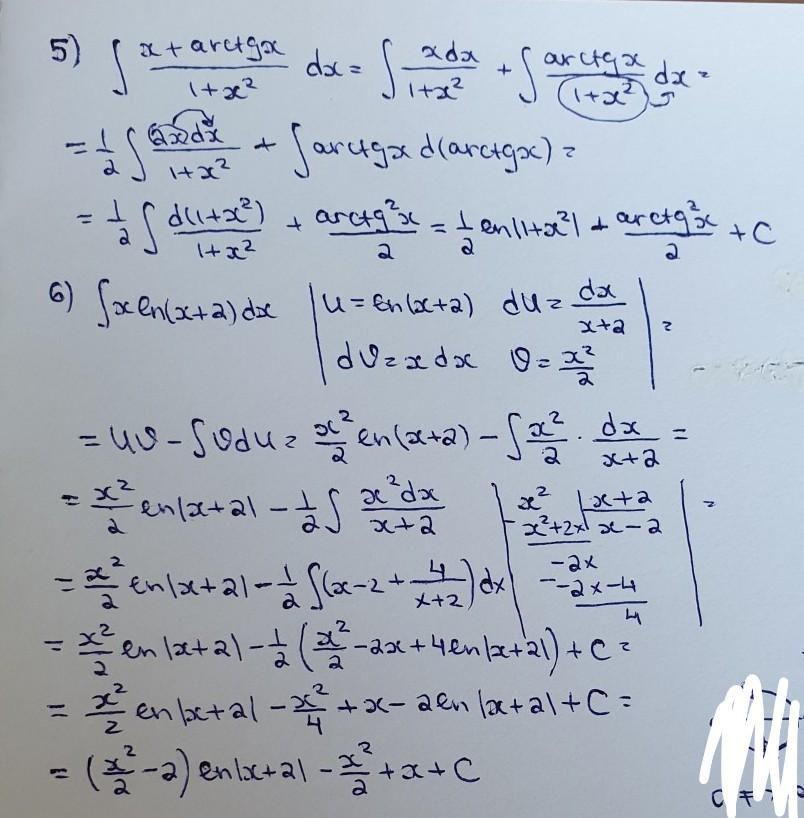 5) ∫ (x + arctgx)/(1+x²) dx = ∫ xdx/(1+x²) + ∫ arctgx/(1+x²) dx =
= 1/2 ∫ 2xdx/(1+x²) + ∫ arctgx d(arctgx) =
= 1/2 ∫ d(1+x²)/(1+x²) + arctg²x/2 = 1/2 ln|1+x²| + arctg²x/2 + C
6) ∫ x ln(x+2) dx | u = ln(x+2) du = dx/(x+2) | =
| dv = x dx v = x²/2 |
= uv - ∫ v du = x²/2 ln(x+2) - ∫ x²/2 · dx/(x+2) =
= x²/2 ln|x+2| - 1/2 ∫ x²dx/(x+2) | x² | x+2 | =
- x²+2x | x-2
-2x
= x²/2 ln|x+2| - 1/2 ∫ (x-2 + 4/(x+2)) dx | - -2x-4
4
= x²/2 ln|x+2| - 1/2 (x²/2 - 2x + 4ln|x+2|) + C =
= x²/2 ln|x+2| - x²/4 + x - 2ln|x+2| + C =
= (x²/2 - 2) ln|x+2| - x²/2 + x + C